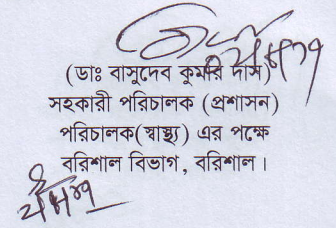 (ডাঃ বাসুদেব কুমার দাস)
সহকারী পরিচালক (প্রশাসন)
পরিচালক(স্বাস্থ্য) এর পক্ষে
বরিশাল বিভাগ, বরিশাল।